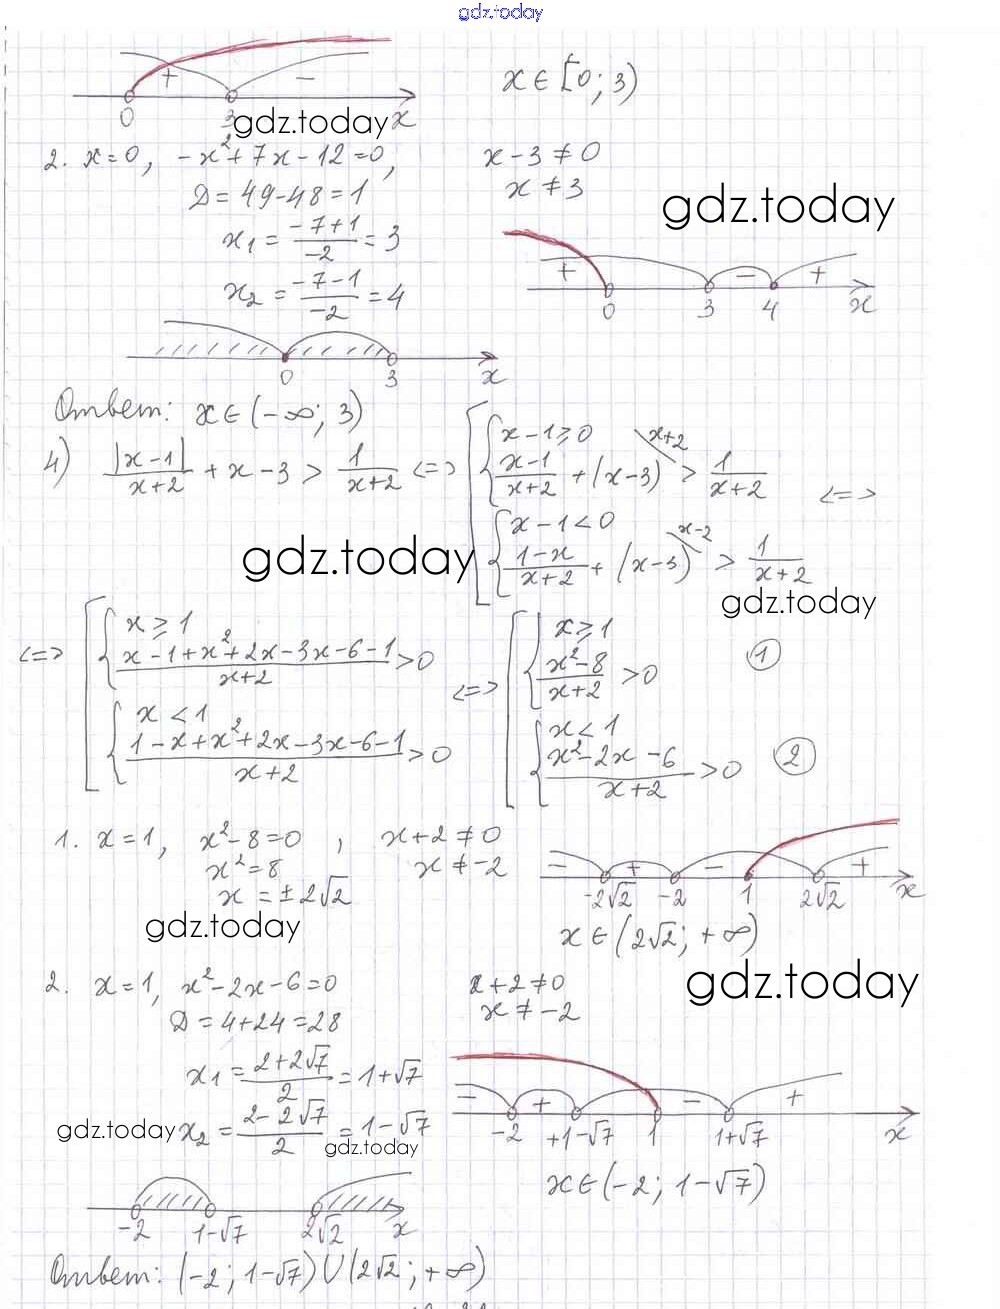 gdz.today
+ −
0 3 x
x ∈ [0; 3)
gdz.today
2. x = 0, -x² + 7x - 12 = 0, x - 3 ≠ 0
D = 49 - 48 = 1 x ≠ 3
gdz.today
x₁ = (-7+1)/(-2) = 3
x₂ = (-7-1)/(-2) = 4
+ − +
0 3 4 x
0 3 x
Ответ: x ∈ (-∞; 3)
4) |x-1|/(x+2) + x - 3 > 1/(x+2) <=> [ { x - 1 ≥ 0
(x-1)/(x+2) + (x-3)^{\x+2} > 1/(x+2) <=>
{ x - 1 < 0
(1-x)/(x+2) + (x-3)^{\x-2} > 1/(x+2)
gdz.today
gdz.today
<=> [ { x ≥ 1
(x-1+x²+2x-3x-6-1)/(x+2) > 0
{ x < 1
(1-x+x²+2x-3x-6-1)/(x+2) > 0
<=> [ { x ≥ 1
(x²-8)/(x+2) > 0 ①
{ x < 1
(x²-2x-6)/(x+2) > 0 ②
1. x = 1, x² - 8 = 0, x + 2 ≠ 0
x² = 8 x ≠ -2
x = ±2√2
− + − +
-2√2 -2 1 2√2 x
gdz.today
x ∈ (2√2; +∞)
gdz.today
2. x = 1, x² - 2x - 6 = 0 2 + 2 ≠ 0
D = 4 + 24 = 28 x ≠ -2
x₁ = (2+2√7)/2 = 1+√7
x₂ = (2-2√7)/2 = 1-√7
gdz.today
gdz.today
− + − +
-2 +1-√7 1 1+√7 x
x ∈ (-2; 1-√7)
-2 1-√7 2√2 x
Ответ: (-2; 1-√7) ∪ (2√2; +∞)